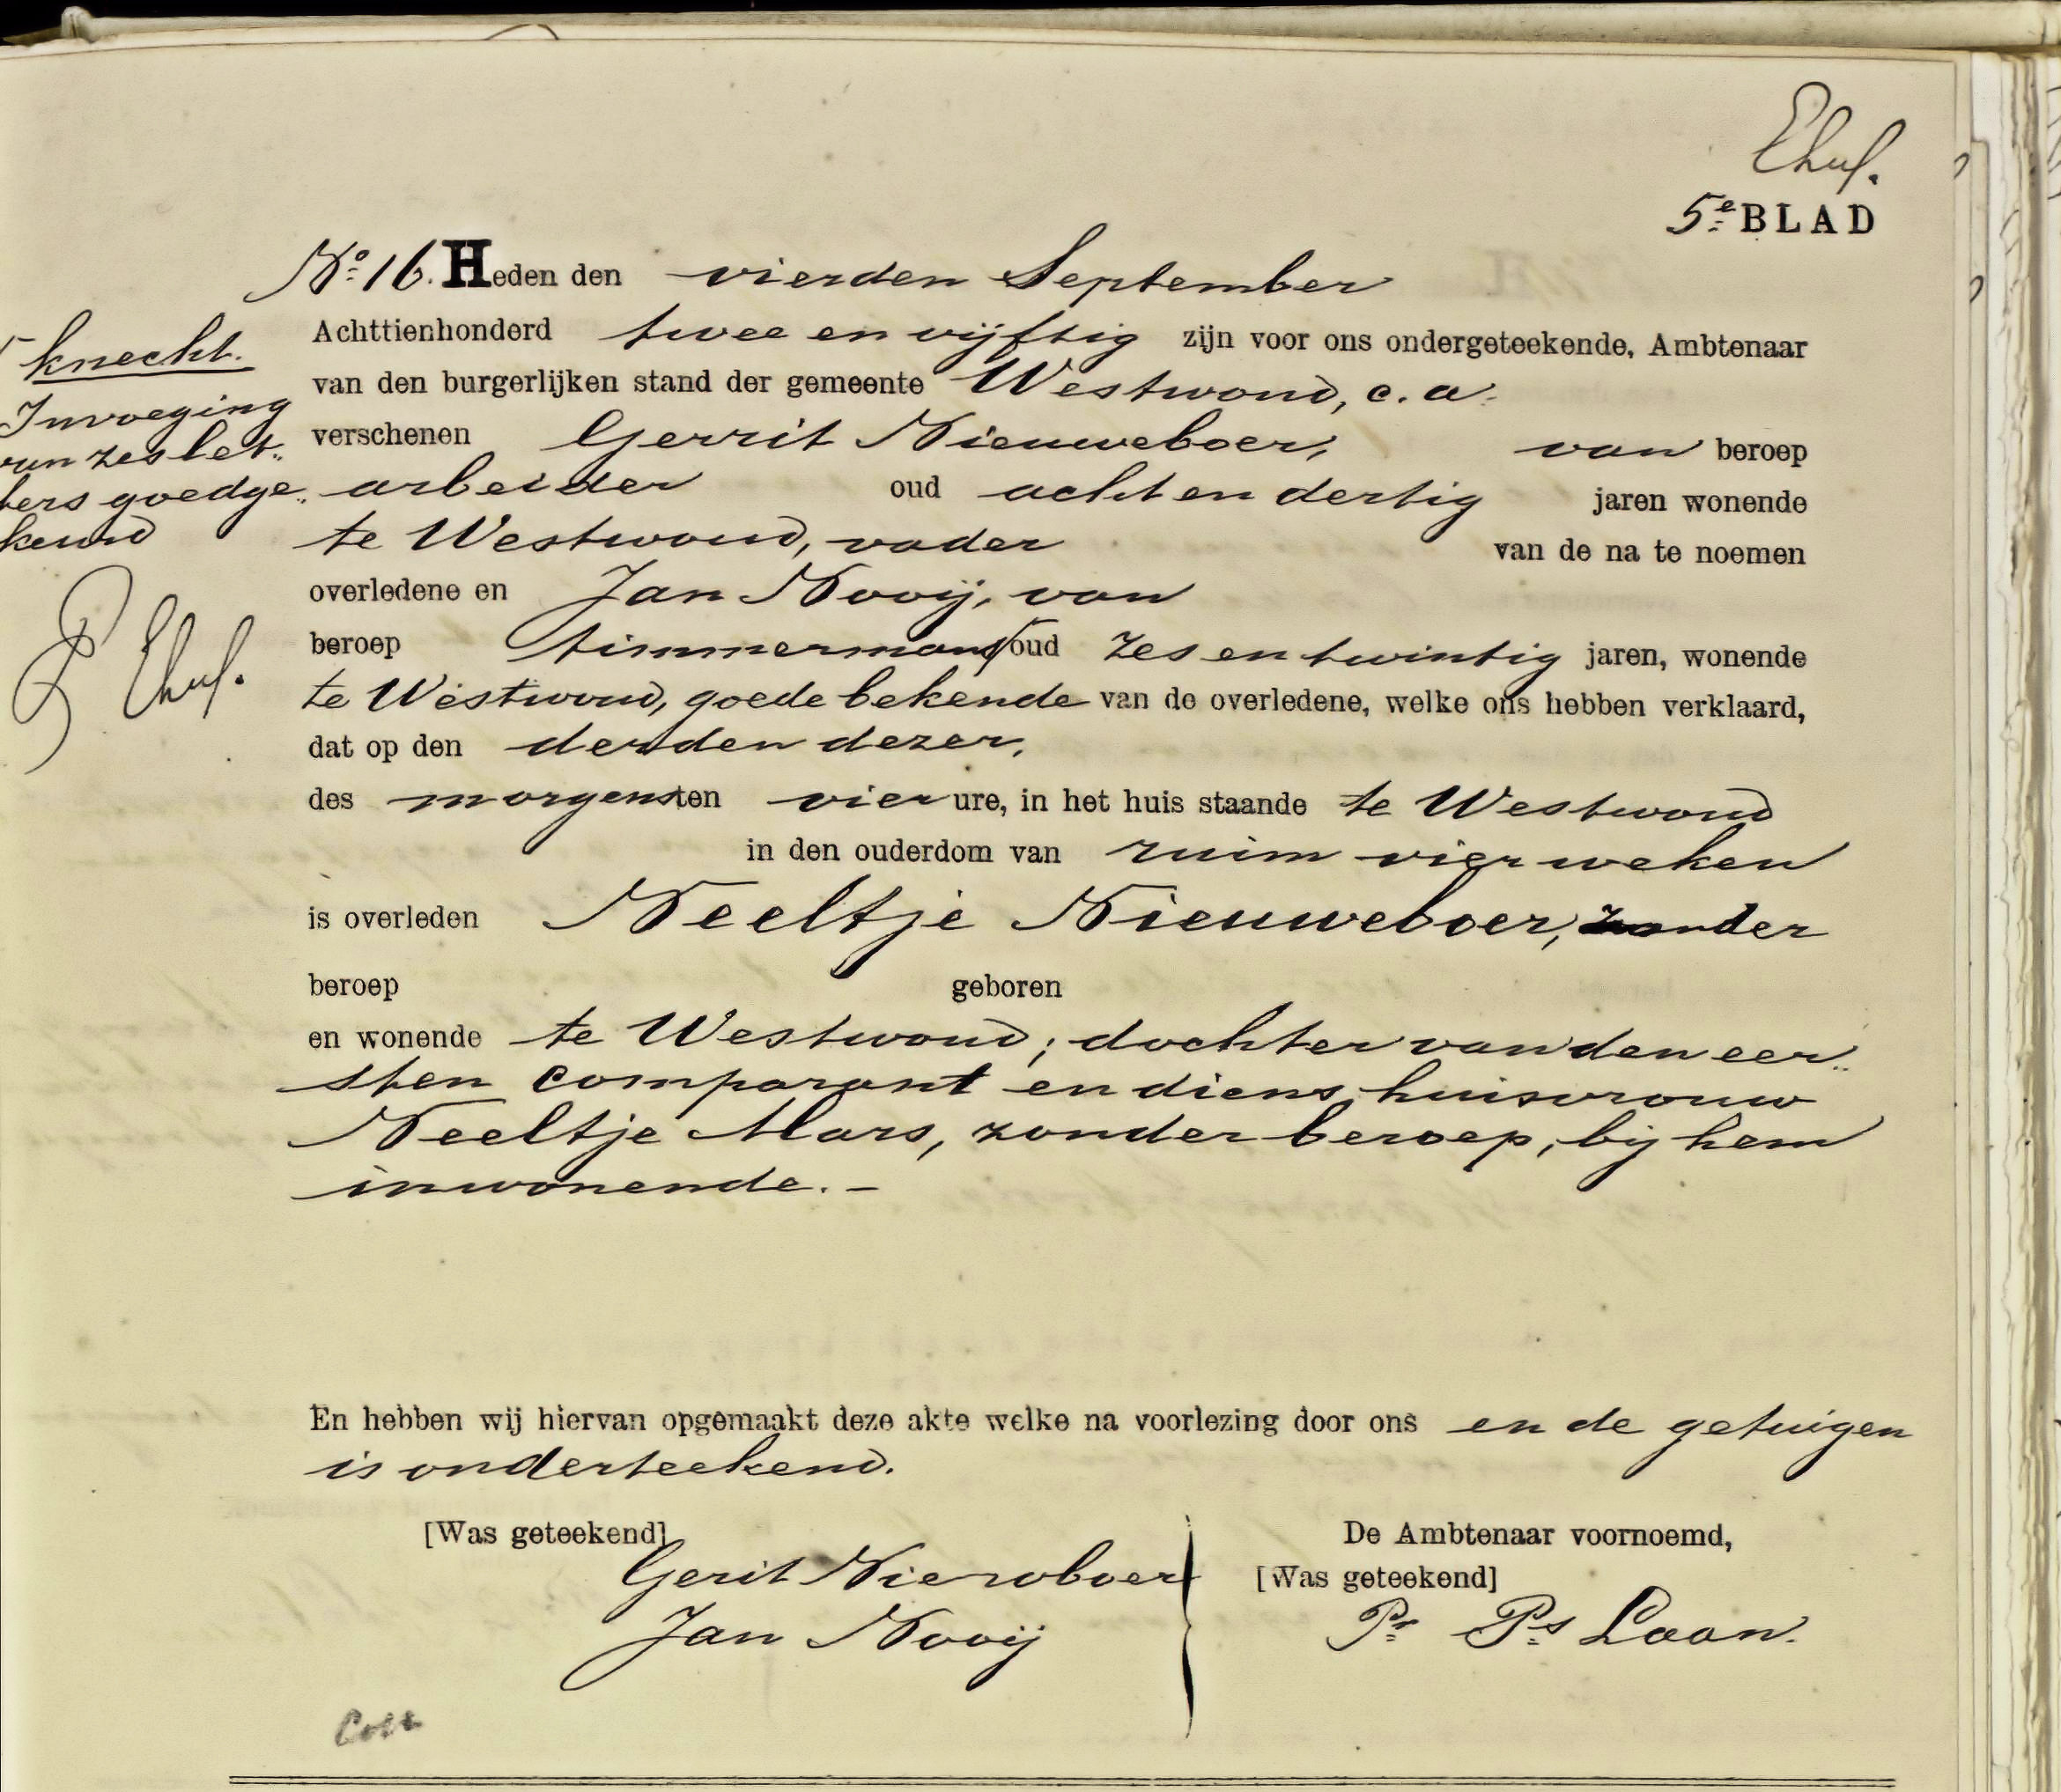 Ehul.
5e BLAD
No. 16. Heden den vierden September
Achttienhonderd twee en vijftig zijn voor ons ondergeteekende, Ambtenaar
van den burgerlijken stand der gemeente Westwoud, c. a.
verschenen Gerrit Nieuweboer, van beroep
arbeider oud acht en dertig jaren wonende
te Westwoud, vader van de na te noemen
overledene en Jan Nooij, van
beroep timmermans oud zes en twintig jaren, wonende
te Westwoud, goede bekende van de overledene, welke ons hebben verklaard,
dat op den derden dezer,
des morgens ten vier ure, in het huis staande te Westwoud
in den ouderdom van ruim vier weken
is overleden Neeltje Nieuweboer, zonder
beroep geboren
en wonende te Westwoud; dochter van den eer„
sten comparant en diens huisvrouw
Neeltje Mars, zonder beroep, bij hem
inwonende. –
knecht.
Invoeging
van zes let„
ters goedge„
keurd
P Ehul.
En hebben wij hiervan opgemaakt deze akte welke na voorlezing door ons en de getuigen
is onderteekend.
[Was geteekend]
Gerit Nieuwboer
Jan Nooij
De Ambtenaar voornoemd,
[Was geteekend]
Pr Ps Laan.